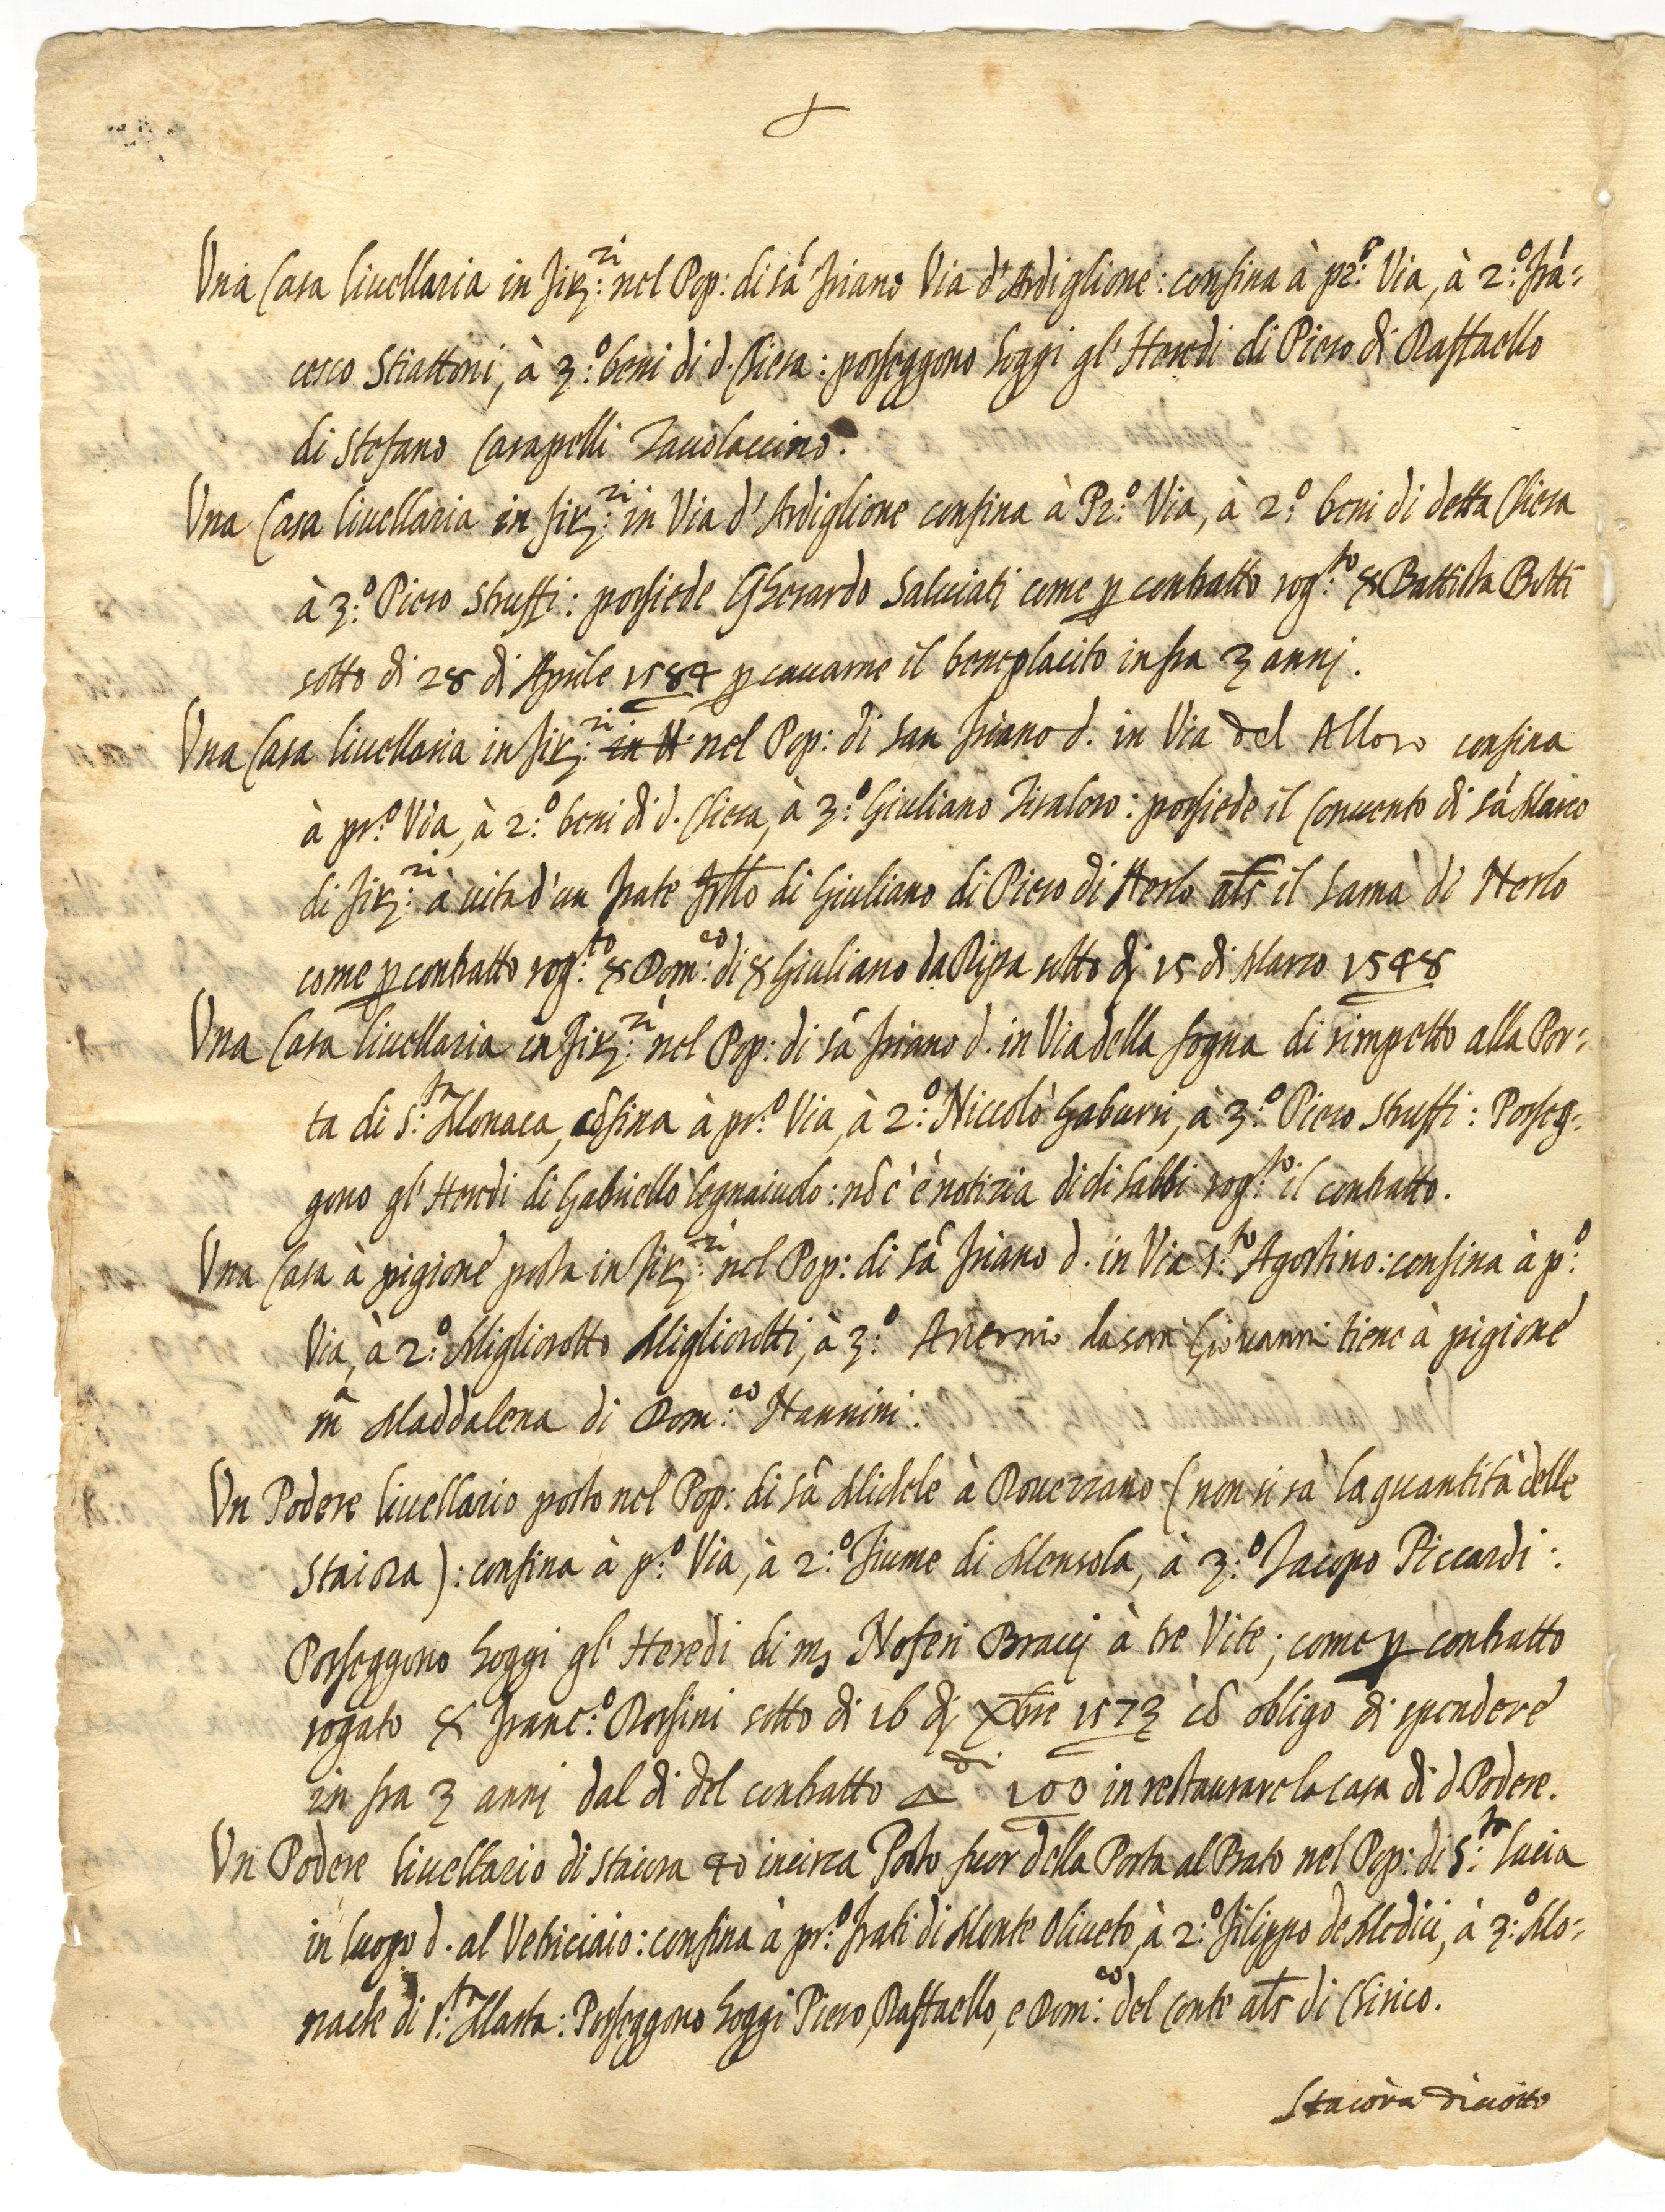 Una Casa livellaria in Fir:zi nel Pop: di sã Friano Via d'Ardiglione: confina à pr:o Via, à 2:o Frã=
cesco Stiattoni, à 3:o beni di d. Chiesa: posseggono hoggi gl' Heredi di Piero di Raffaello
di Stefano Carapelli Tavolaccino.
Una Casa livellaria in Fir:zi in Via d'Ardiglione confina à Pr:o Via, à 2:o beni di detta Chiesa
à 3:o Piero Struffi: possiede Gherardo Salviati come p contratto rog:to S Battista Botti
sotto di 28 di Aprile 1584 p cavarne il beneplacito infra 3 annj.
Una Casa livellaria in Fir:zi in V nel Pop: di San Friano d. in Via del Alloro confina
à pr:o Via, à 2:o beni di d. Chiesa, à 3:o Giuliano Tiraloro: possiede il Convento di sã Marco
di Fir:zi à vita d'un frate frllo di Giuliano di Piero di Nerlo als il Lama di Nerlo
come p contratto rog:to S Dom:co di S Giuliano da Ripa sotto dj 15 di Marzo 1548
Una Casa livellaria in Fir:zi nel Pop: di sã Friano d. in Via della fogna di rimpetto alla Por=
ta di S:ta Monaca, cõfina à pr:o Via, à 2:o Niccolò Gaburri, à 3:o Piero Struffi: Posseg=
gono gl' Heredi di Gabriello legnaiuolo: nõ c'è notizia di chi habbi rog:to il contratto.
Una Casa à pigione posta in Fir:zi nel Pop: di sã Friano d. in Via S:to Agostino: confina à p:o
Via, à 2:o Migliorotto Migliorotti, à 3:o da san Giovanni tiene à pigione
mã Maddalena di Dom:co Nannini.
Un Podere livellario posto nel Pop: di sã Michele à Rovezzano (non si sà la quantità delle
Staiora): confina à p:o Via, à 2:o Fiume di Mensola, à 3:o Jacopo Piccardi:
Posseggono hoggi gl' Heredi di ms Noferi Braccj à tre Vite; come p contratto
rogato S Franc:o Rossini sotto di 16 dj Xbre 1573 cõ obligo di spendere
in fra 3 annj dal di del contratto △di 100 in restaurare la casa di d Podere.
Un Podere livellario di staiora 40 incirca Posto fuor della Porta al Prato nel Pop: di S:ta Lucia
in luogo d. al Vetriciaio: confina à pr:o frati di Monte Oliveto, à 2:o Filippo de Medici, à 3:o Mo=
nache di S:ta Marta: Posseggono hoggi Piero, Raffaello, e Dom:co del Conte als di Chirico.
Staiora diciotto